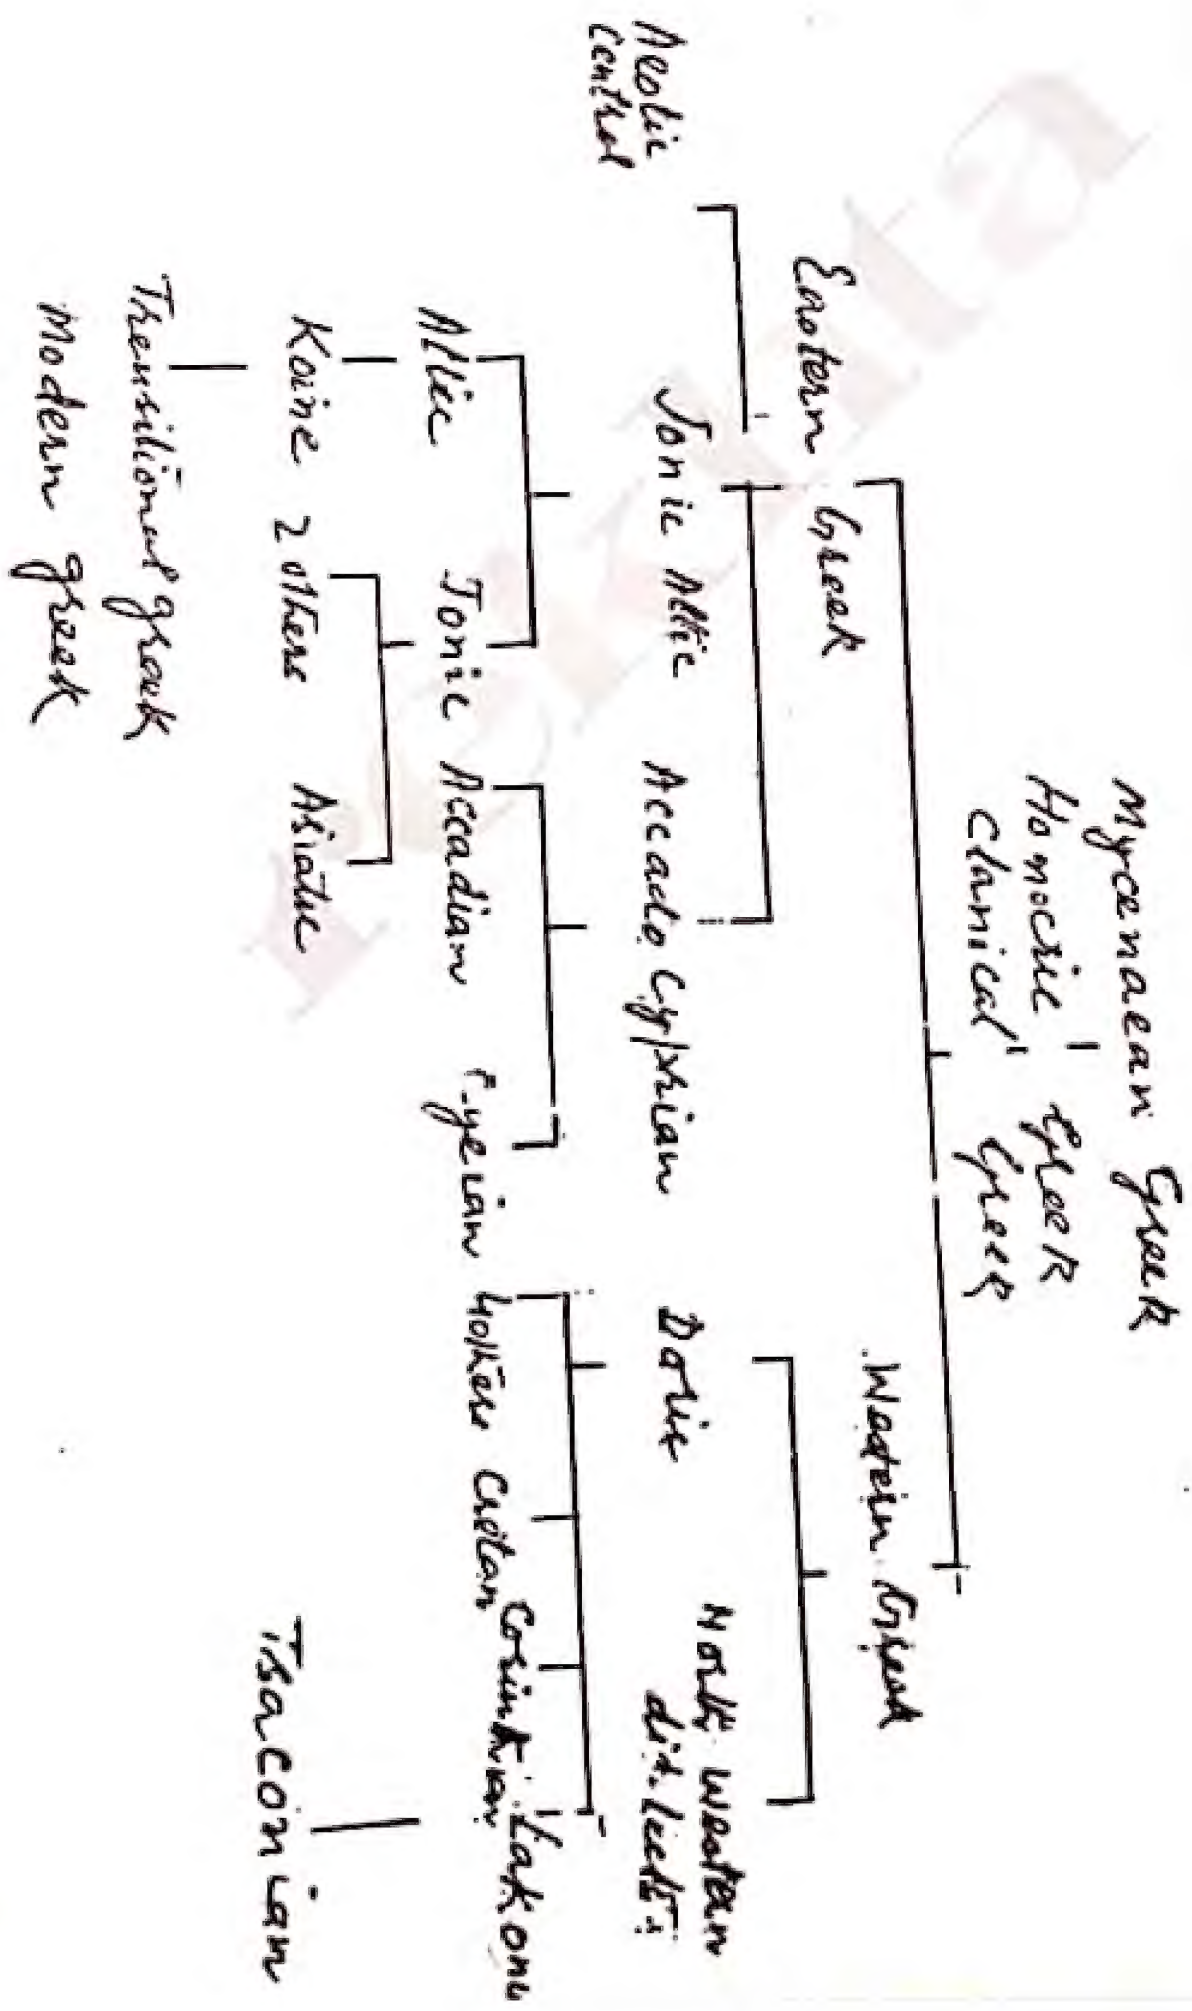 Mycenaean Greek
Homocric Greek
Clanical Greek
Eastern Greek
Western Greek
Aeolic central
Ionic Attic
Accado Cyprian
Doric
North Western
Attic
Ionic
Accadian
4 others
Cretan
Corinthian
Lakonu
Koine
2 others
Asiatic
Tsaconian
Transitional greek
Modern greek